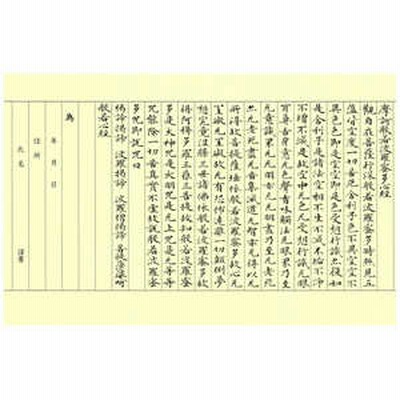 摩訶般若波羅蜜多心経
觀自在菩薩行深般若波羅蜜多時照見五
蘊皆空度一切苦厄舎利子色不異空空不
異色色即是空空即是色受想行識亦復如
是舎利子是諸法空相不生不滅不垢不浄
不増不減是故空中无色无受想行識无眼
耳鼻舌身意无色聲香味觸法无眼界乃至
无意識界无无明亦无无明盡乃至无老死
亦无老死盡无苦集滅道无智亦无得以无
所得故菩提薩埵依般若波羅蜜多故心无
罣礙无罣礙故无有恐怖遠離一切顛倒夢
想究竟涅槃三世諸佛依般若波羅蜜多故
得阿耨多羅三藐三菩提故知般若波羅蜜
多是大神咒是大明咒是无上咒是无等等
咒能除一切苦真實不虚故説般若波羅蜜
多咒即説咒曰
羯諦羯諦 波羅羯諦 波羅僧羯諦 菩提薩婆訶
般若心経
為
年 月 日
住所
氏名 謹書